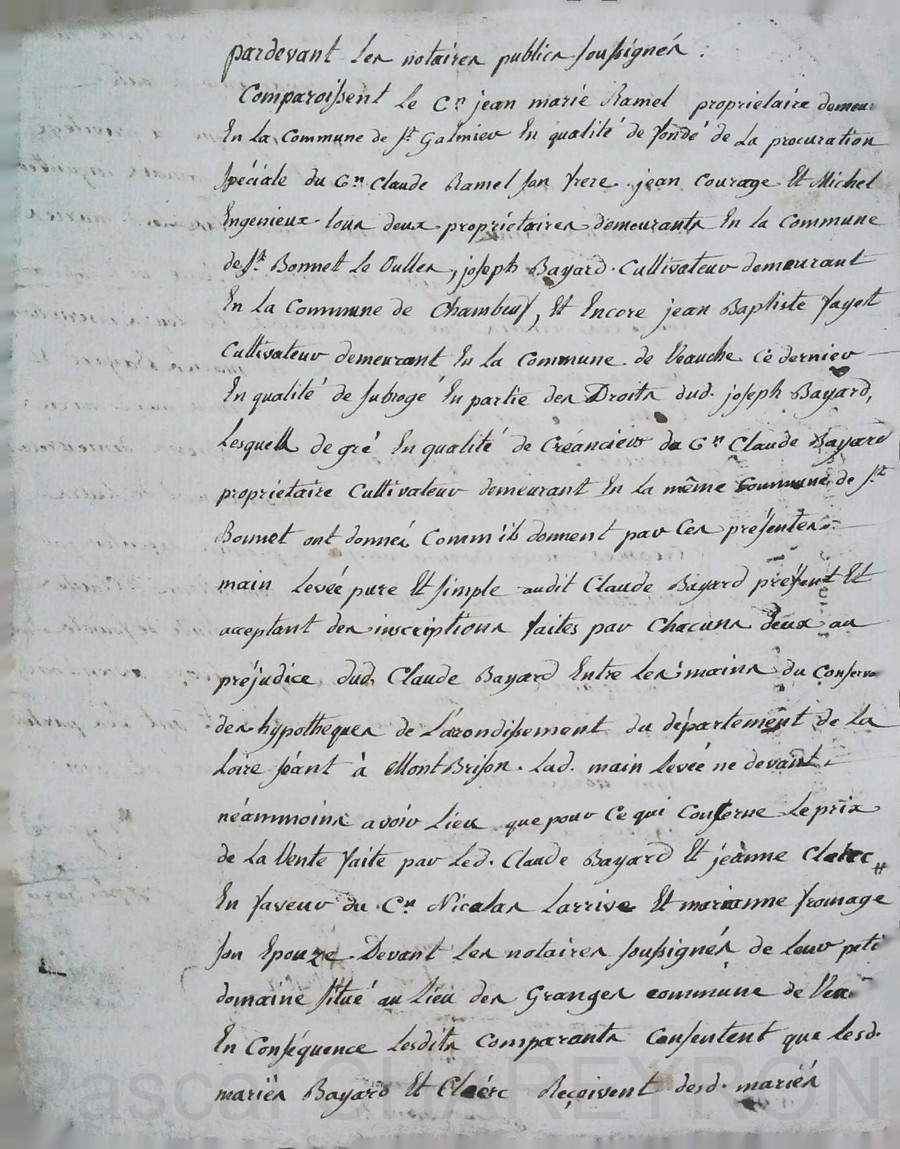 pardevant les notaires publics soussignés :
Comparoissent le Cn jean marie Ramel propriétaire demeur
En la Commune de St Galmier En qualité de fondé de la procuration
Spéciale du Cn Claude Ramel son frere jean Courage Et Michel
Engenieux tous deux propriétaires demeurants En la Commune
de St Bonnet Le Oulles, joseph Bayard Cultivateur demeurant
En la Commune de Chambeuf, Et Encore jean Baptiste fayet
Cultivateur demeurant En la Commune de Veauche Ce dernier
En qualité de subrogé En partie des Droits dud. joseph Bayard,
Lesquels de gré En qualité de Créanciers du Cn Claude Bayard
propriétaire Cultivateur demeurant En la même Commune de St
Bonnet ont donnés Comm'ils donnent par Ces présentes
main Levée pure Et simple audit Claude Bayard présent Et
acceptant des inscriptions faites par Chacuns deux au
préjudice dud. Claude Bayard Entre les mains du Conserv
des hypotheques de L'arondissement du département de la
Loire séant à MontBrison. Lad. main Levée ne devant
néammoins avoir Lieu que pour Ce qui Conserne Le prix
de La Vente faite par Led. Claude Bayard Et jeanne Clerc
En faveur du Cn Nicolas Larrive Et marianne fromage
son Epouze Devant Les notaires soussignés de leur peti
domaine situé au Lieu des Granges commune de Vea
En Conséquence Lesdits Comparants Consentent que lesd.
mariés Bayard Et Clerc Reçoivent desd. mariés
Pascal CHAREYRON